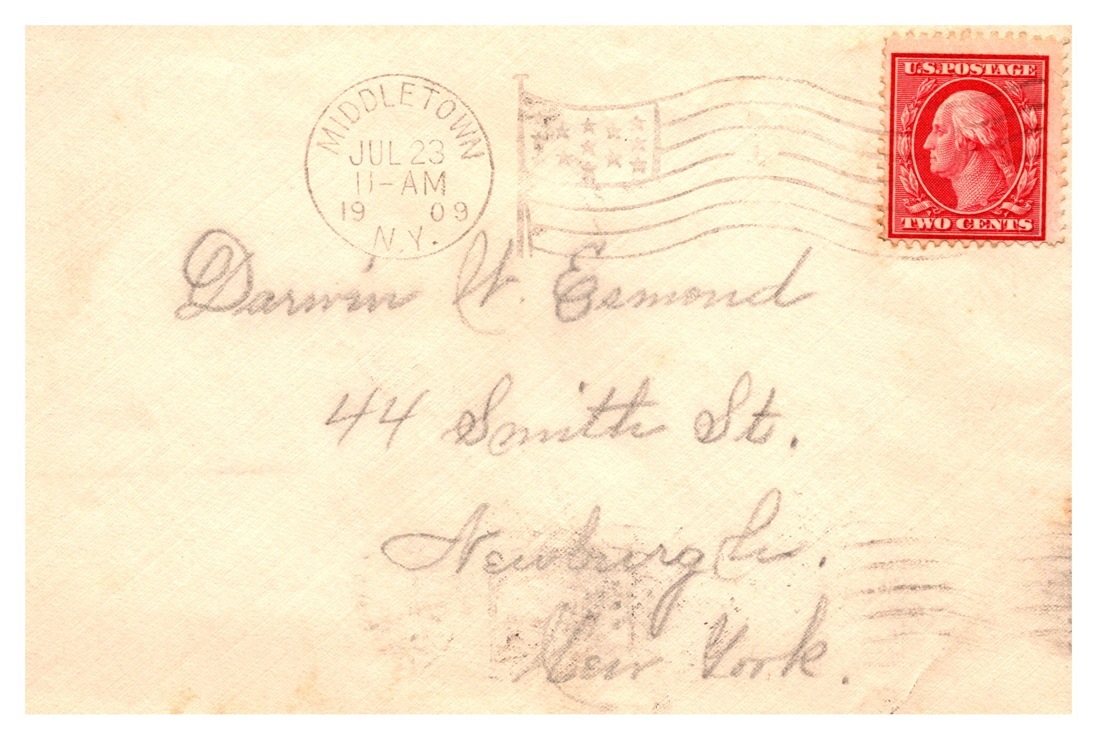 MIDDLETOWN
JUL 23
11-AM
19 09
N.Y.
U.S. POSTAGE
TWO CENTS
Darwin W. Esmond
44 Smith St.
Newburgh.
New York.